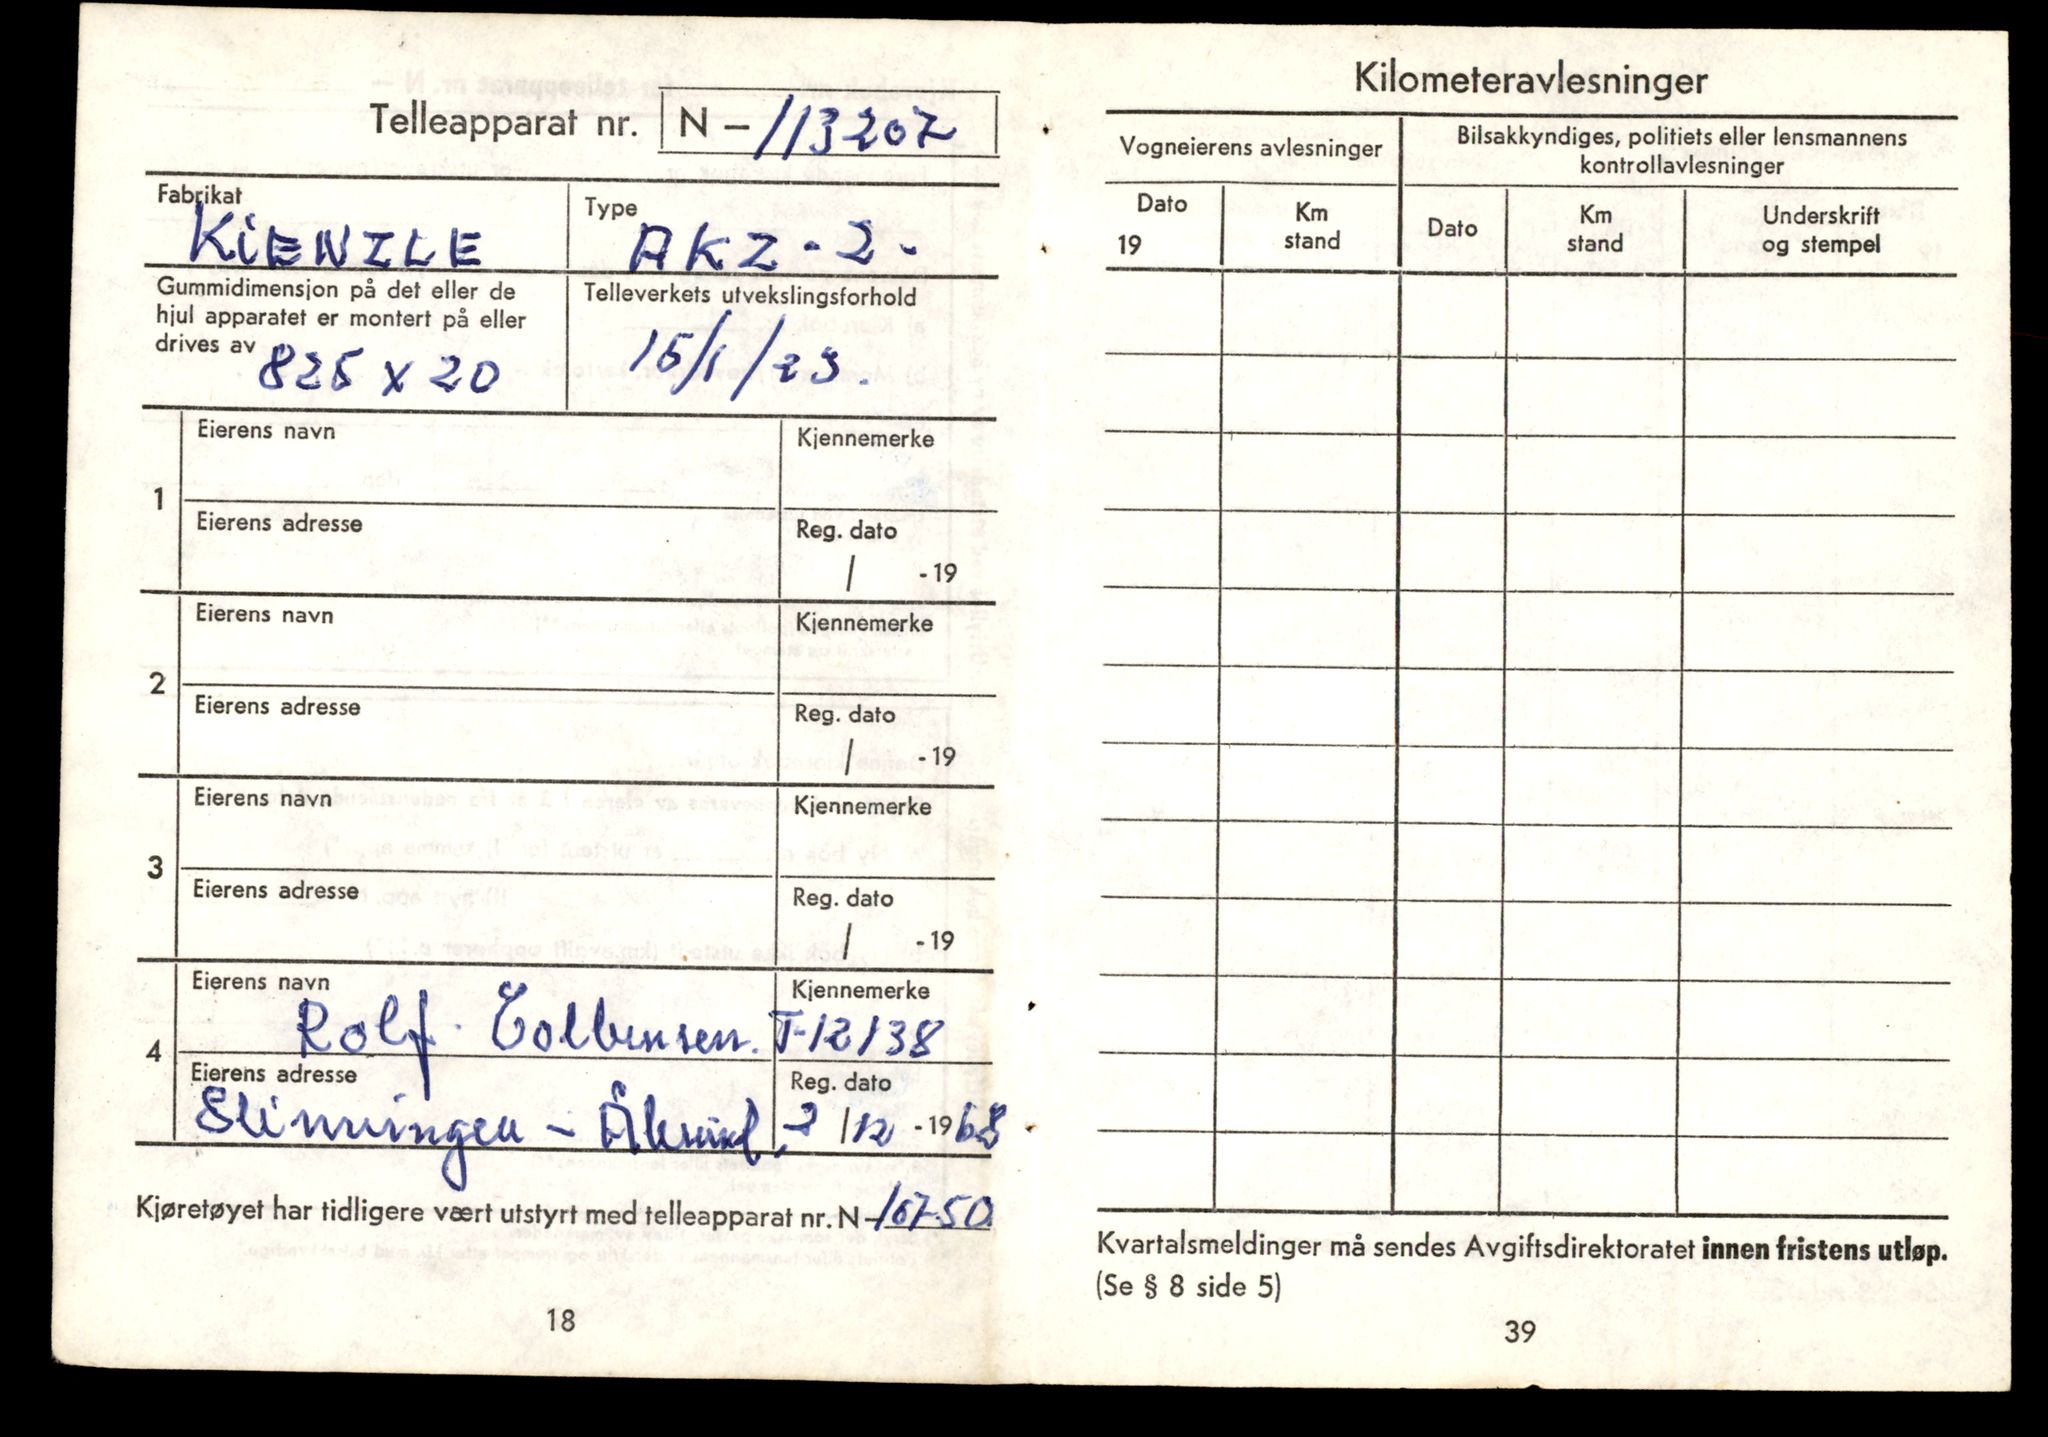 Telleapparat nr. N - 113207
Fabrikat
KIENZLE
Type
AKZ - 2 -
Gummidimensjon på det eller de
hjul apparatet er montert på eller
drives av
825 x 20
Telleverkets utvekslingsforhold
15/1/23.
Eierens navn
Kjennemerke
1
Eierens adresse
Reg. dato
/ -19
Eierens navn
Kjennemerke
2
Eierens adresse
Reg. dato
/ -19
Eierens navn
Kjennemerke
3
Eierens adresse
Reg. dato
/ -19
Eierens navn
Rolf
Kjennemerke
T-12138
4
Eierens adresse
Reg. dato
2/12 -1968
Kjøretøyet har tidligere vært utstyrt med telleapparat nr. N-10750
18
Kilometeravlesninger
Vogneierens avlesninger
Bilsakkyndiges, politiets eller lensmannens
kontrollavlesninger
Dato
19
Km
stand
Dato
Km
stand
Underskrift
og stempel
Kvartalsmeldinger må sendes Avgiftsdirektoratet innen fristens utløp.
(Se § 8 side 5)
39